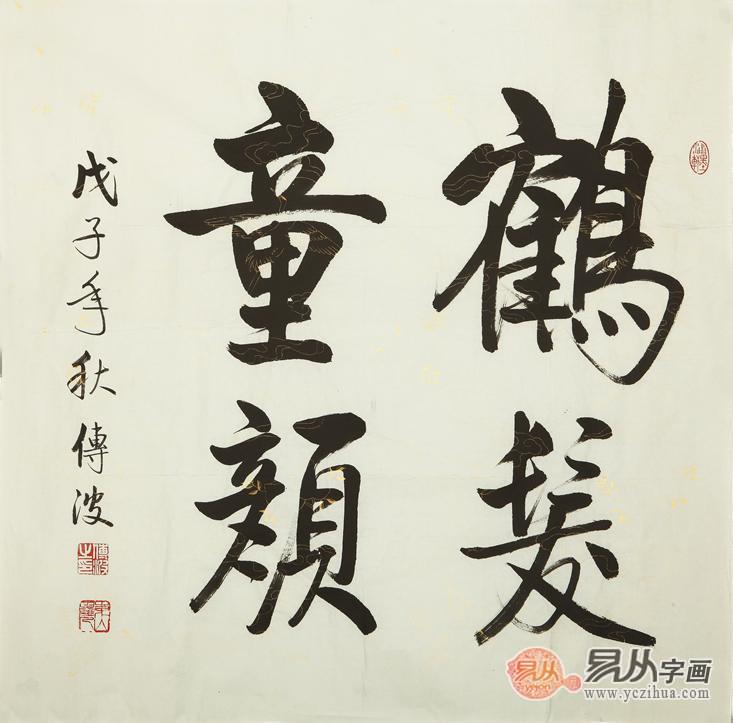 鶴髮
童顏
戊子年秋傳波
傳波之印
易从字画
www.yczihua.com